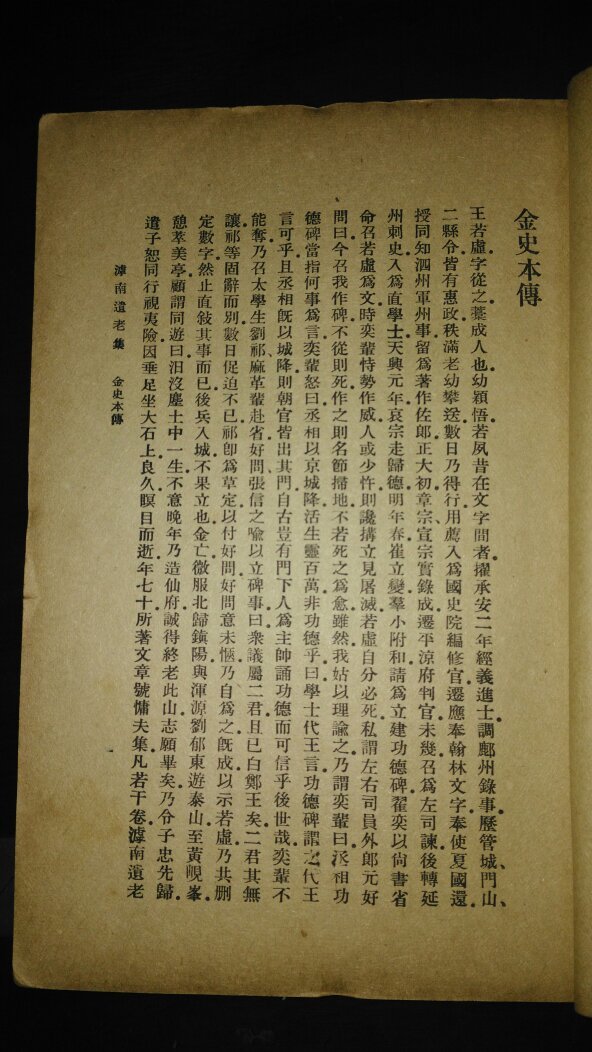 金史本傳
王若虛字從之。藁成人也。幼穎悟若夙昔在文字間者。擢承安二年經義進士。調鄜州錄事。歷管城、門山、
二縣令。皆有惠政。秩滿老幼攀送。數日乃得行。用薦入爲國史院編修官。遷應奉翰林文字。奉使夏國還。
授同知泗州軍州事。留爲著作佐郎。正大初。章宗、宣宗實錄成。遷平涼府判官。未幾召爲左司諫。後轉延
州刺史。入爲直學士。天興元年。哀宗走歸德。明年春。崔立變。羣小附和。請爲立建功德碑。翟奕以尙書省
命召若虛爲文。時奕輩恃勢作威。人或少忤。則讒搆立見屠滅。若虛自分必死。私謂左右司員外郎元好
問曰。今召我作碑。不從則死。作之則名節掃地。不若死之爲愈。雖然我姑以理諭之。乃謂奕輩曰。丞相功
德碑當指何事爲言。奕輩怒曰。丞相以京城降。活生靈百萬。非功德乎。曰學士代王言。功德碑謂之代王
言可乎。且丞相旣以城降。則朝官皆出其門。自古豈有門下人爲主帥誦功德。而可信乎後世哉。奕輩不
能奪。乃召太學生劉祁麻革輩赴省。好問、張信之喩以立碑事曰。衆議屬二君。且已白鄭王矣。二君其無
讓。祁等固辭而別。數日促迫不已。祁卽爲草定。以付好問。好問意未愜。乃自爲之。旣成以示若虛。乃共刪
定數字。然止直敍其事而已。後兵入城。不果立也。金亡微服北歸鎭陽。與渾源劉郁東遊泰山。至黃峴峯。
憩萃美亭。顧謂同遊曰。汨沒塵土中一生。不意晚年乃造仙府。誠得終老此山。志願畢矣。乃令子忠先歸。
遣子恕同行視夷險。因垂足坐大石上。良久瞑目而逝。年七十。所著文章號慵夫集凡若干卷。滹南遺老
滹南遺老集　金史本傳